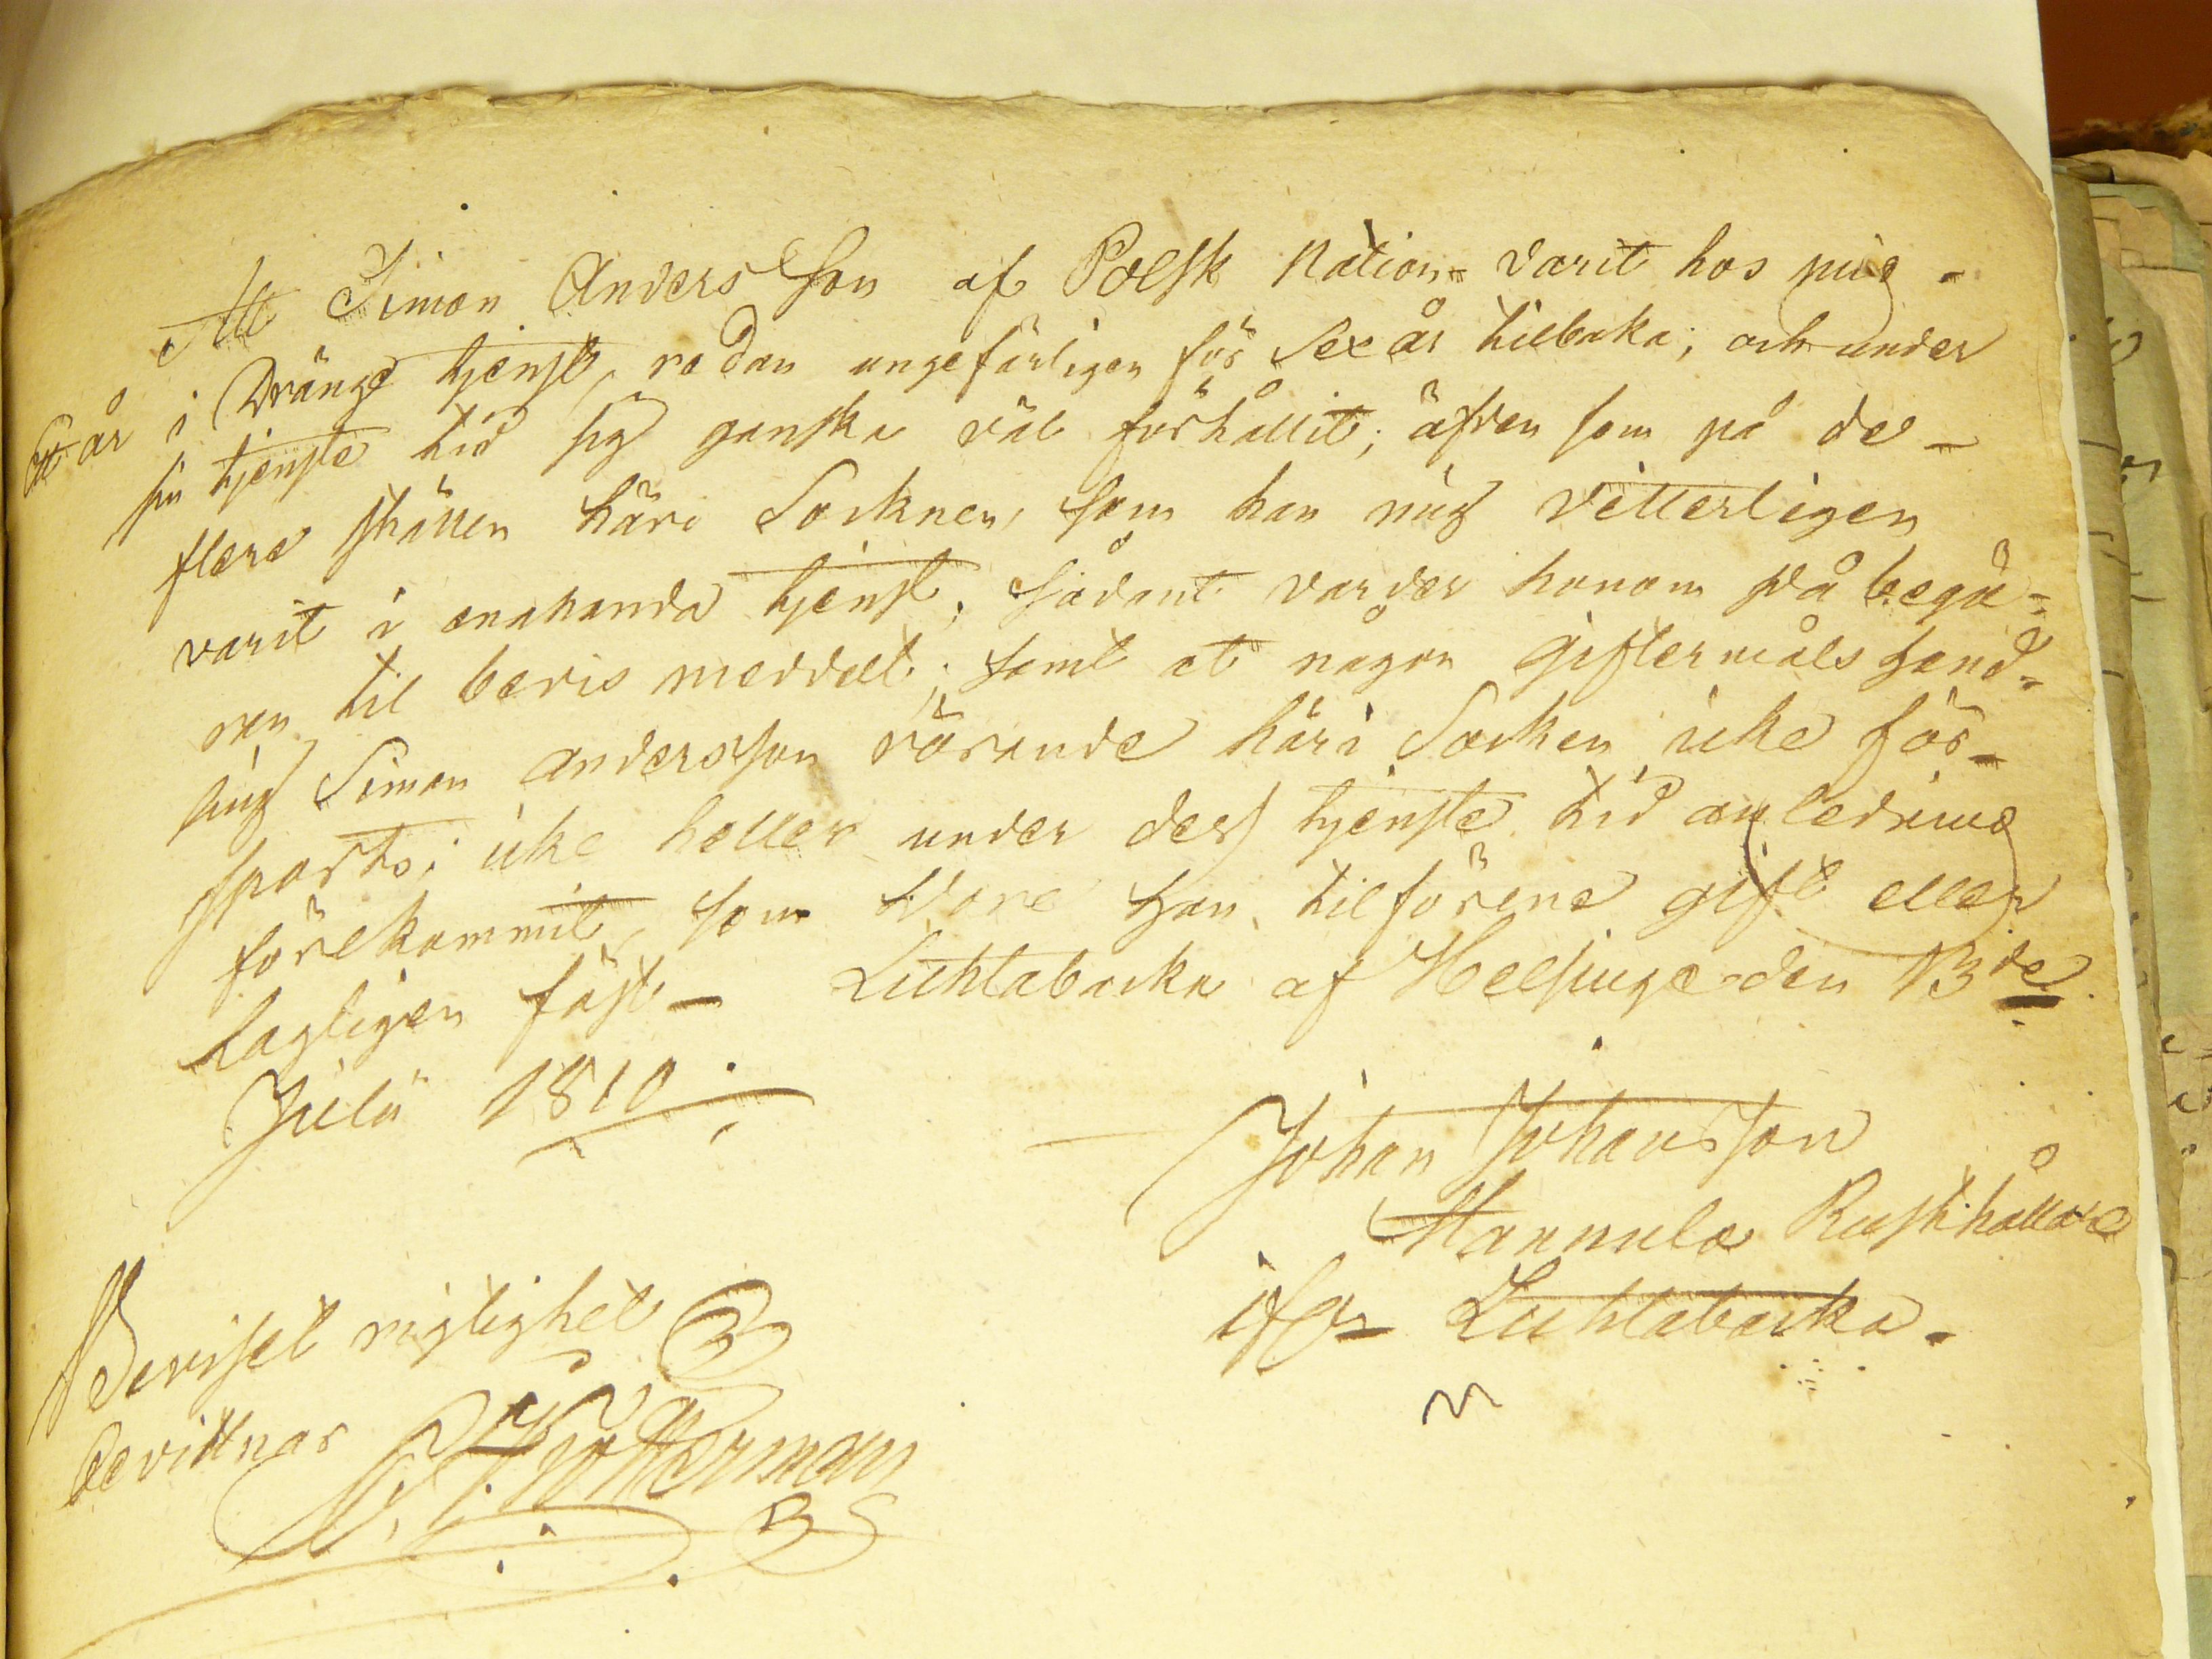 Att Simon Anders Son af Polsk Nation varit hos mig
Ett år i Dränge tjenst, redan ungefärligen för Sex år tillbaka; och under
sin tjenste tid sig ganska väl förhållit; äfven som på de
flere ställen häri Socknen, som han mig vetterligen
varit i enahanda tjenst; Sådant varder honom på begä=
ran til bevis meddelt; samt at någon giftermåls hand=
Simon andersson rörande häri Socken icke för-
sports; icke heller under dess tjenste tid anledning
förekommit, som Vore han tilförene gift eller
lagligen fäst – Luhtabacka af Helsinge den 13de
Julii 1810
Johan Johansson
Mannula Rusthållare
ifrån Luhtabacka.
Beviset rigtighet
bevittnar